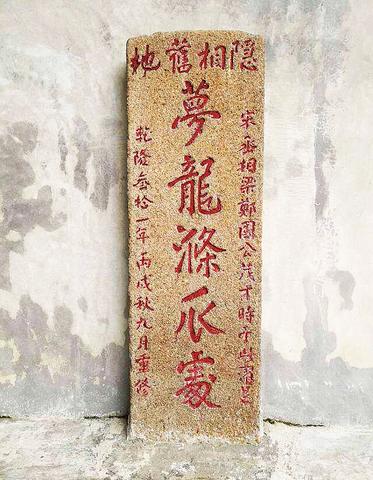 隐相舊地
宋丞相梁鄭國公茂才時于此
夢龍滌爪處
乾隆叁拾一年丙戌秋九月重修